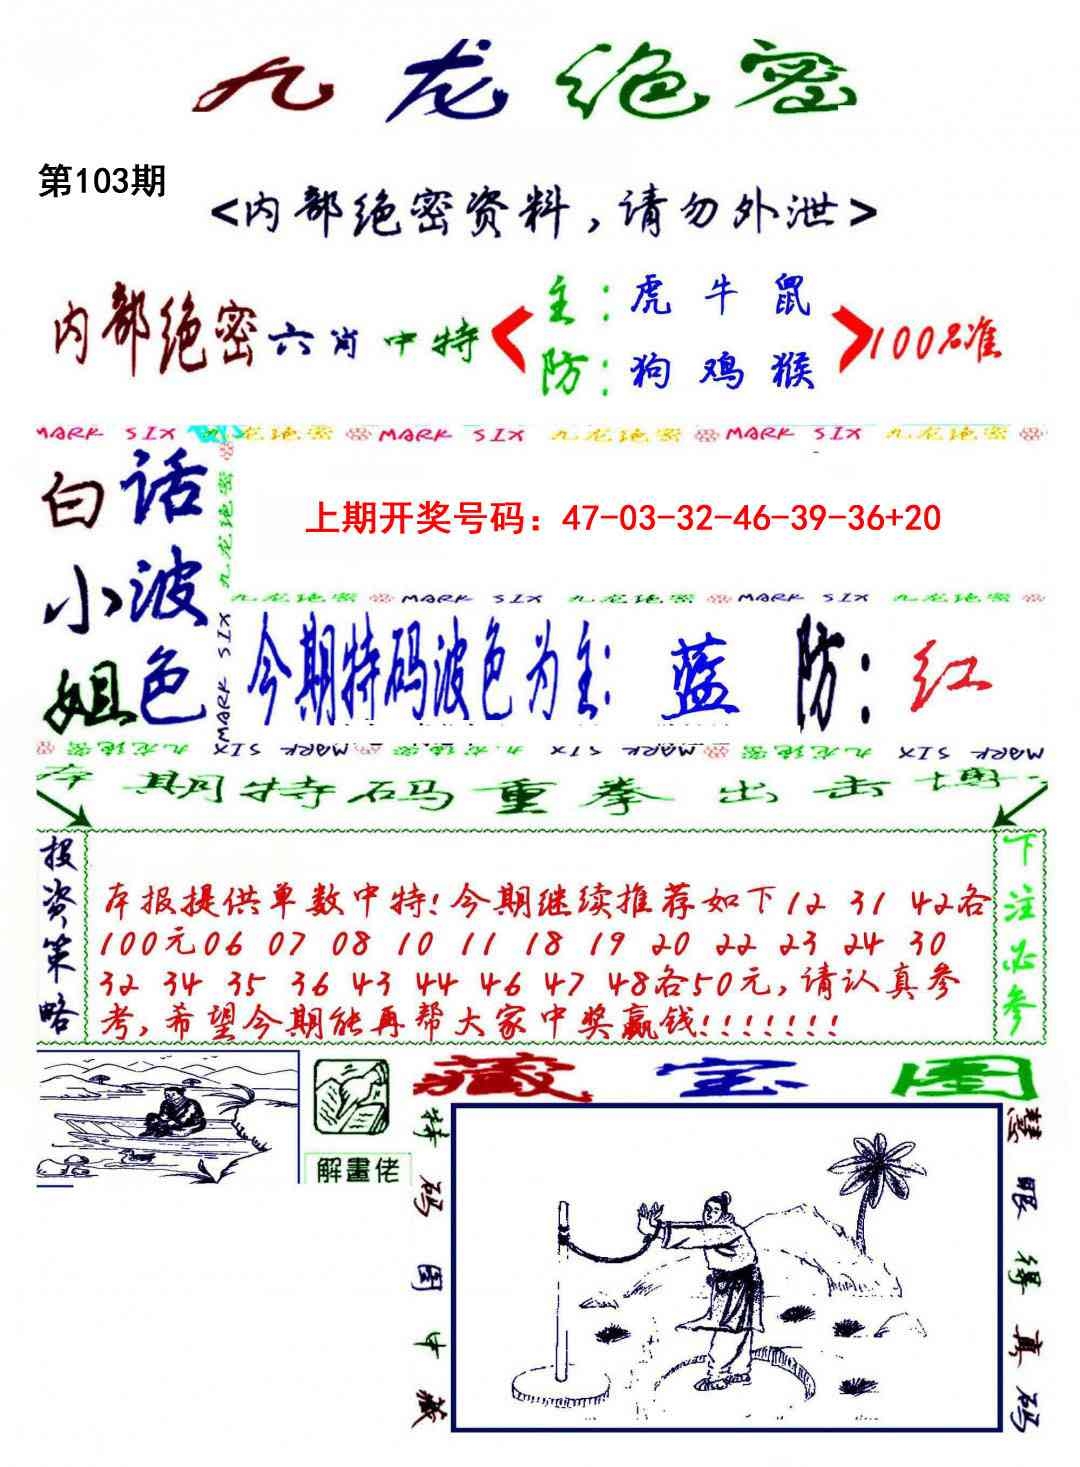 九龙绝密
第103期
<内部绝密资料,请勿外泄>
内部绝密六肖中特
主:虎 牛 鼠
防:狗 鸡 猴
100%准
MARK SIX 九龙绝密 MARK SIX 九龙绝密 MARK SIX 九龙绝密
九龙绝密 MARK SIX
白小姐
话波色
上期开奖号码：47-03-32-46-39-36+20
九龙绝密 MARK SIX 九龙绝密 MARK SIX 九龙绝密
今期特码波色为主:蓝 防:红
九龙绝密 MARK SIX 九龙绝密 MARK SIX 九龙绝密 MARK SIX
本期特码重拳出击博
投资策略
本报提供单数中特!今期继续推荐如下12 31 42各
100元06 07 08 10 11 18 19 20 22 23 24 30
32 34 35 36 43 44 46 47 48各50元,请认真参
考,希望今期能再帮大家中奖赢钱!!!!!!!
下注必参
解畫佬
藏宝图
特码图中藏
慧眼得真码